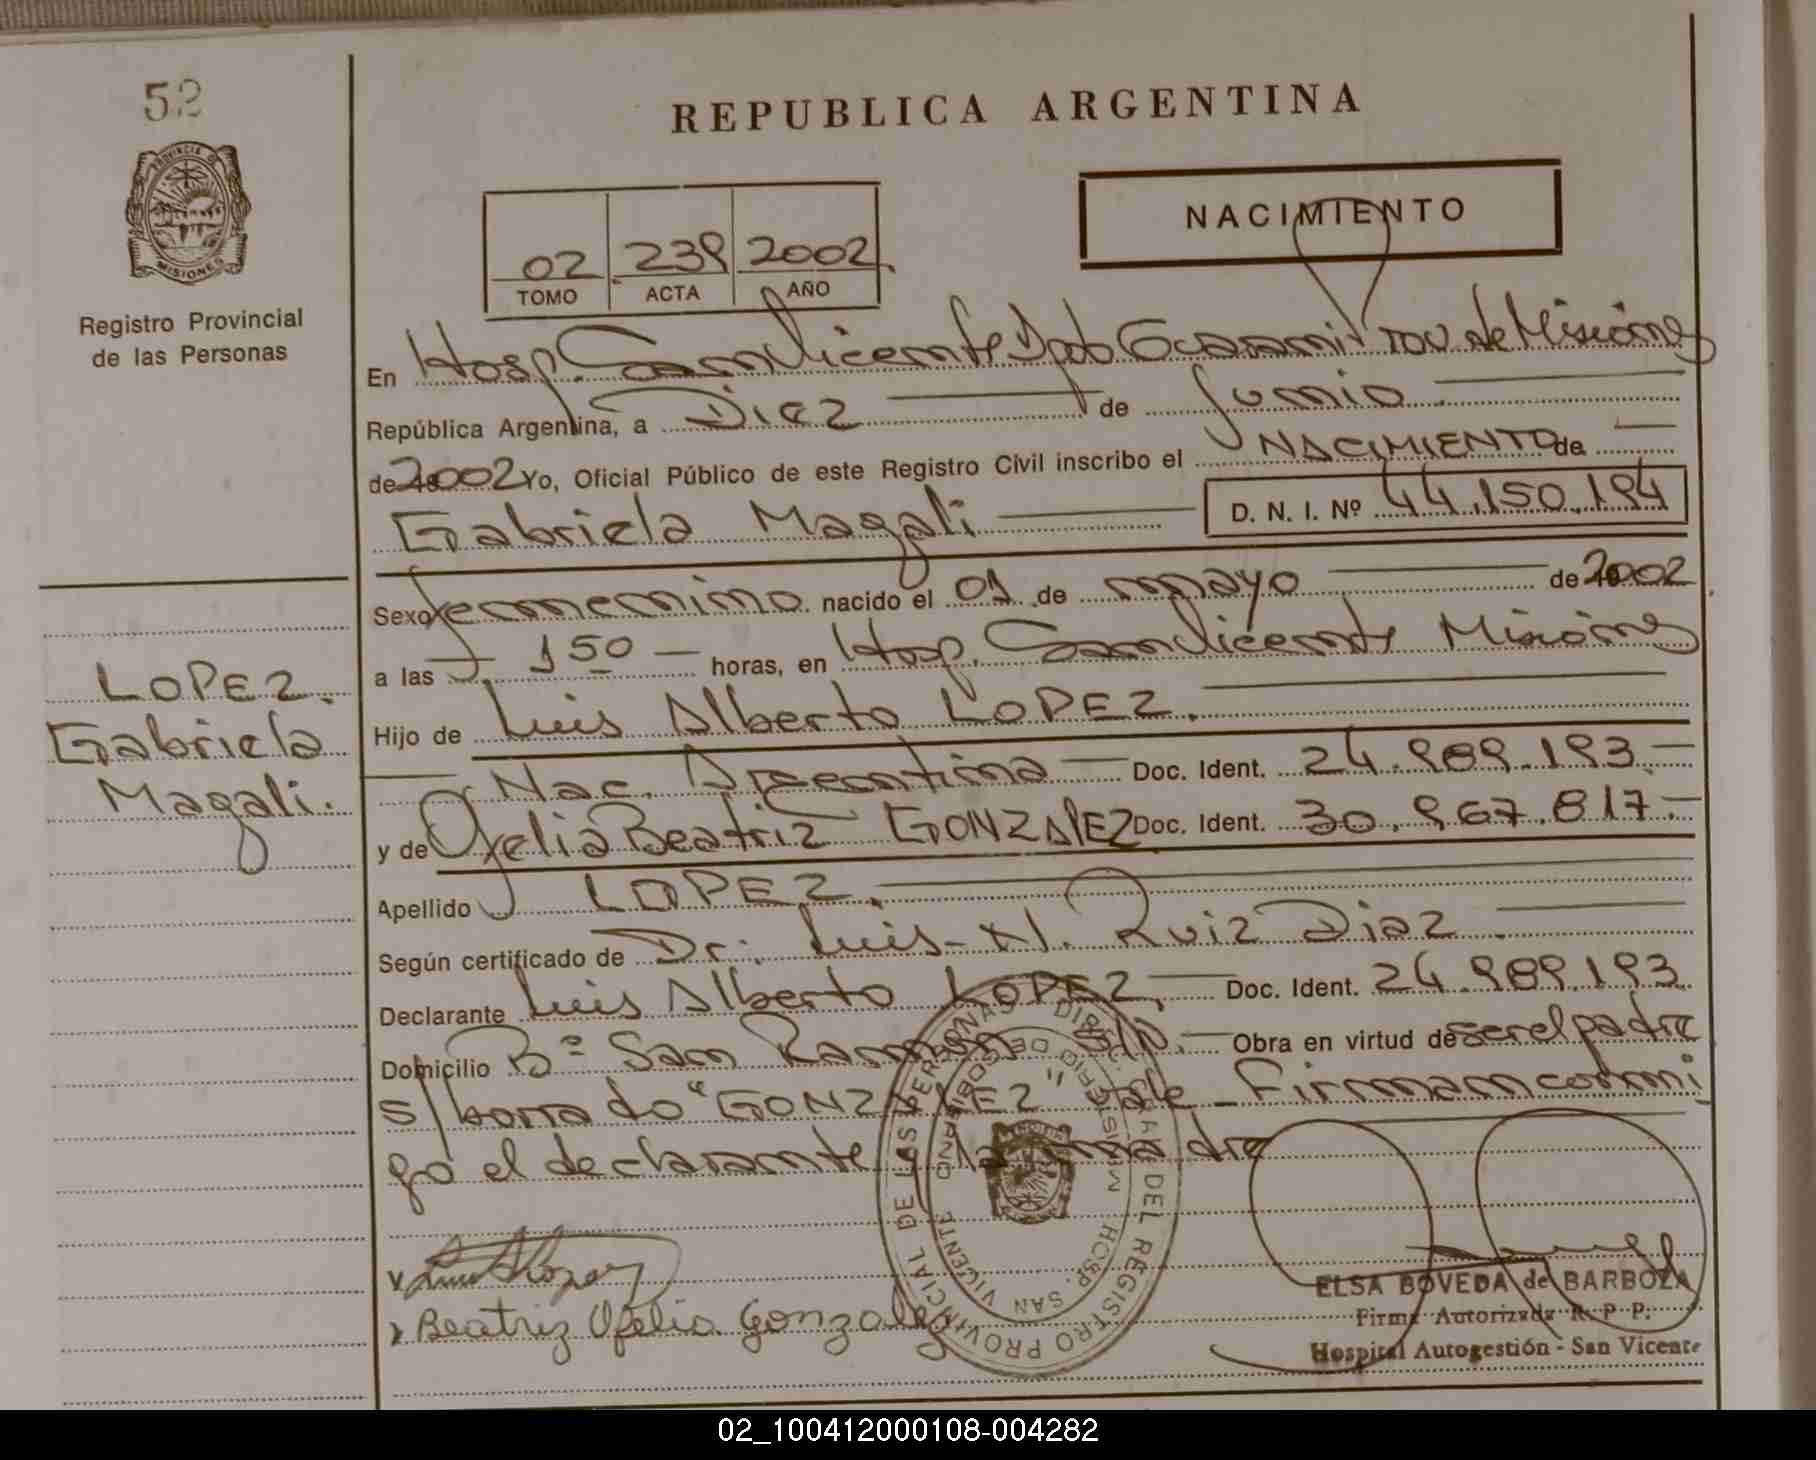 52
REPUBLICA ARGENTINA
PROVINCIA DE
MISIONES
Registro Provincial
de las Personas
NACIMIENTO
02 239 2002
TOMO ACTA AÑO
En Hosp. San Vicente Dpto Guaraní Prov de Misiones
República Argentina, a Diez de Junio
de 2002 Yo, Oficial Público de este Registro Civil inscribo el NACIMIENTO de
Gabriela Magali D. N. I. Nº 44.150.194
Sexo femenino nacido el 01 de mayo de 2002
a las 1 50 horas, en Hosp. San Vicente Misiones
Hijo de Luis Alberto LOPEZ.
Nac. Argentina Doc. Ident. 24.989.193.-
y de Ofelia Beatriz GONZALEZ Doc. Ident. 30.967.817.-
Apellido LOPEZ.
Según certificado de Dr. Luis N. Ruiz Diaz.
Declarante Luis Alberto LOPEZ, Doc. Ident. 24.989.193
Domicilio Bº San Ramon Obra en virtud de ser el padre
s/borrado "GONZALEZ" Vale - Firman conmi
go el declarante y la madre
LOPEZ.
Gabriela
Magali.
Beatriz Ofelia Gonzalez
DEL REGISTRO PROVINCIAL DE LAS PERSONAS
HOSP. SAN VICENTE
ELSA BOVEDA de BARBOZA
Firma Autorizada R. P P.
Hospital Autogestión - San Vicente
02_100412000108-004282